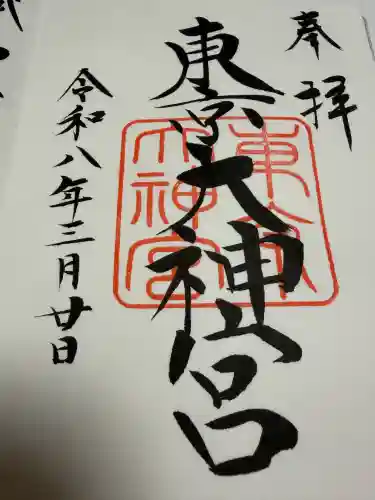 奉拝
東京大神宮
東京大神宮
令和八年三月廿日